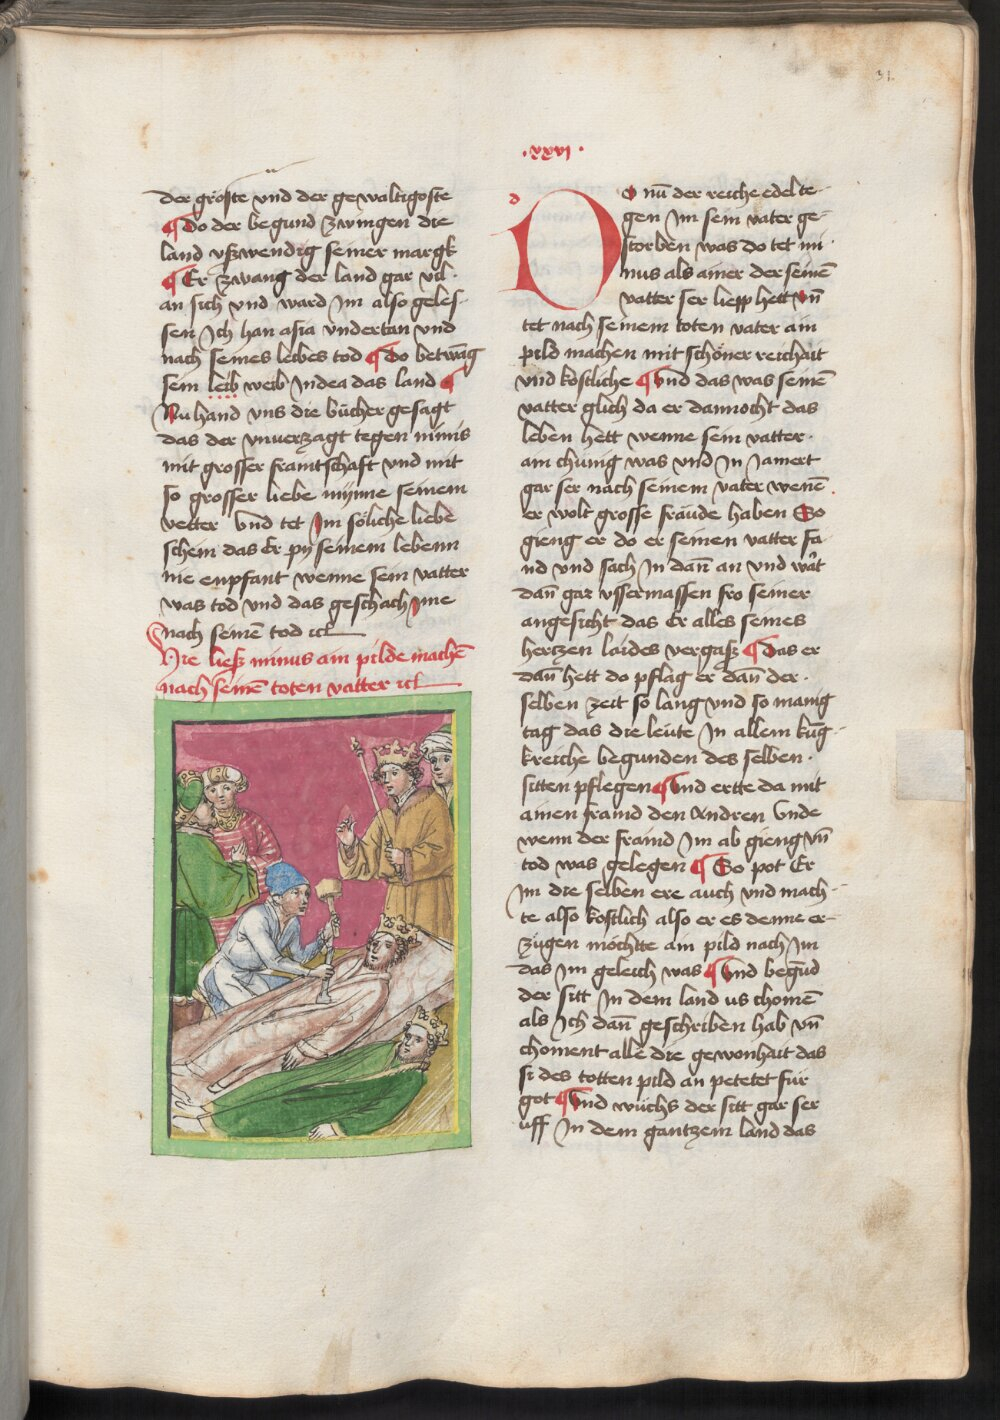 31.
·xxvi·
der gröste vnd der gewaltigoste
¶ Do der begund zwingen die
land vßwendig seiner margk
¶ Er zwang der land gar vil·
an sich vnd ward Im also geles-
sen Ich han asia vndertan vnd
nach seines leibes tod ¶ Do betwāg
sein leib weib Indea das land ¶
Nu hand vns die bücher gesagt
das der vnuerzagt tegen ninis
mit grosser fraintschaft vnd mit
so grosser liebe mynne seinem
vetter Vnd tet Im söliche liebe
schein das Er py seinem lebenn
nie enpfant wenne sein vatter
was tod vnd das geschach Ime
nach seinē tod ıcl
Hie ließ minus ain pilde machē
nach seinē toten vatter ıcl
d
DO nū der reiche edel te-
gen Im sein vater ge-
storben was do tet mi-
nus als ainer der seinē
vatter ser liepp hett vn̄
tet nach seinem toten vater ain
pild machen mit schöner reichait
vnd kostliche ¶ Vnd das was seinē
vatter glich da er dannocht das
leben hett wenne sein vatter·
ain chünig was vnd In Jamert
gar ser nach seinem vater wenē
er wolt grosse fräude haben So
gieng er do er seinen vatter fa-
nd vnd sach In dan̄ an vnd wart
dan̄ gar vssermassen fro seiner
angesicht das Er alles seines
hertzen laides vergaß ¶ Das er
dan̄ hett do pflag er dan̄ der·
selben zeit so lang vnd so manig
tag das die leüte In allem küg-
kreiche begunden des selben·
sitten pflegen ¶ Vnd ertte da mit
ainen fraind den Andren Vnde
wenn der fraind Im ab gieng vn̄
tod was gelegen ¶ So pot Er
Im die selben ere auch vnd mach-
te also kostlich also er es denne er-
zügen möchtte ain pild nach Im
das Im geleich was ¶ Vnd begūd
der sitt In dem land us chomē
als Ich dan̄ geschriben hab vn̄
choment alle die gewonhait das
si des totten pild an petetet für
got ¶ Vnd wüchs der sitt gar ser
uff In dem gantzem land das